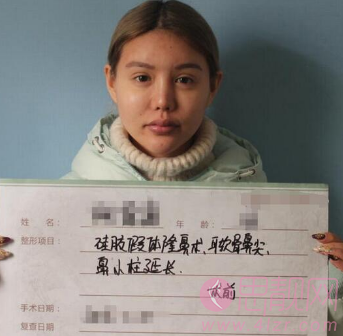 姓 名：
年 龄：
整形项目：硅胶假体隆鼻术、耳软骨鼻尖、
鼻小柱延长.
术前
手术日期：
复查日期